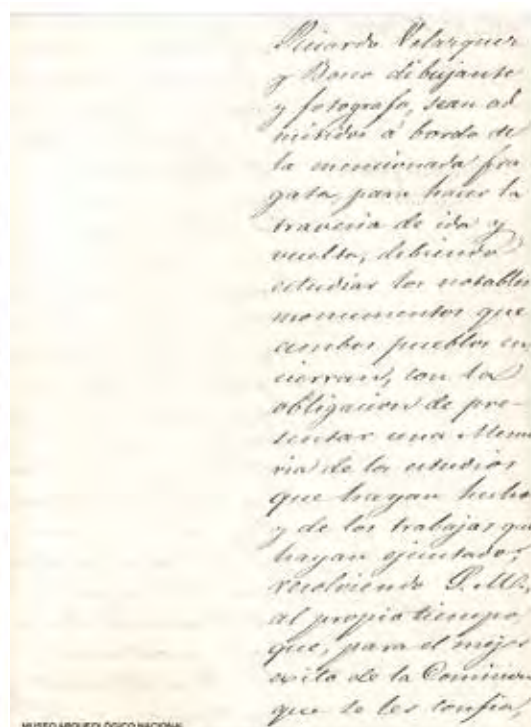 Ricardo Velazquez
y Bosco dibujante
y fotografo, sean ad
mitidos á bordo de
la mencionada fra
gata, para hacer la
travesia de ida y
vuelta, debiendo
estudiar los notables
monumentos que
ambos pueblos en
cierran, con la
obligacion de pre-
sentar una Memo
ria de los estudios
que hayan hecho
y de los trabajos que
hayan ejecutado;
resolviendo S. M.
al propio tiempo,
que, para el mejor
exito de la Comision
que se les confia
MUSEO ARQUEOLÓGICO NACIONAL